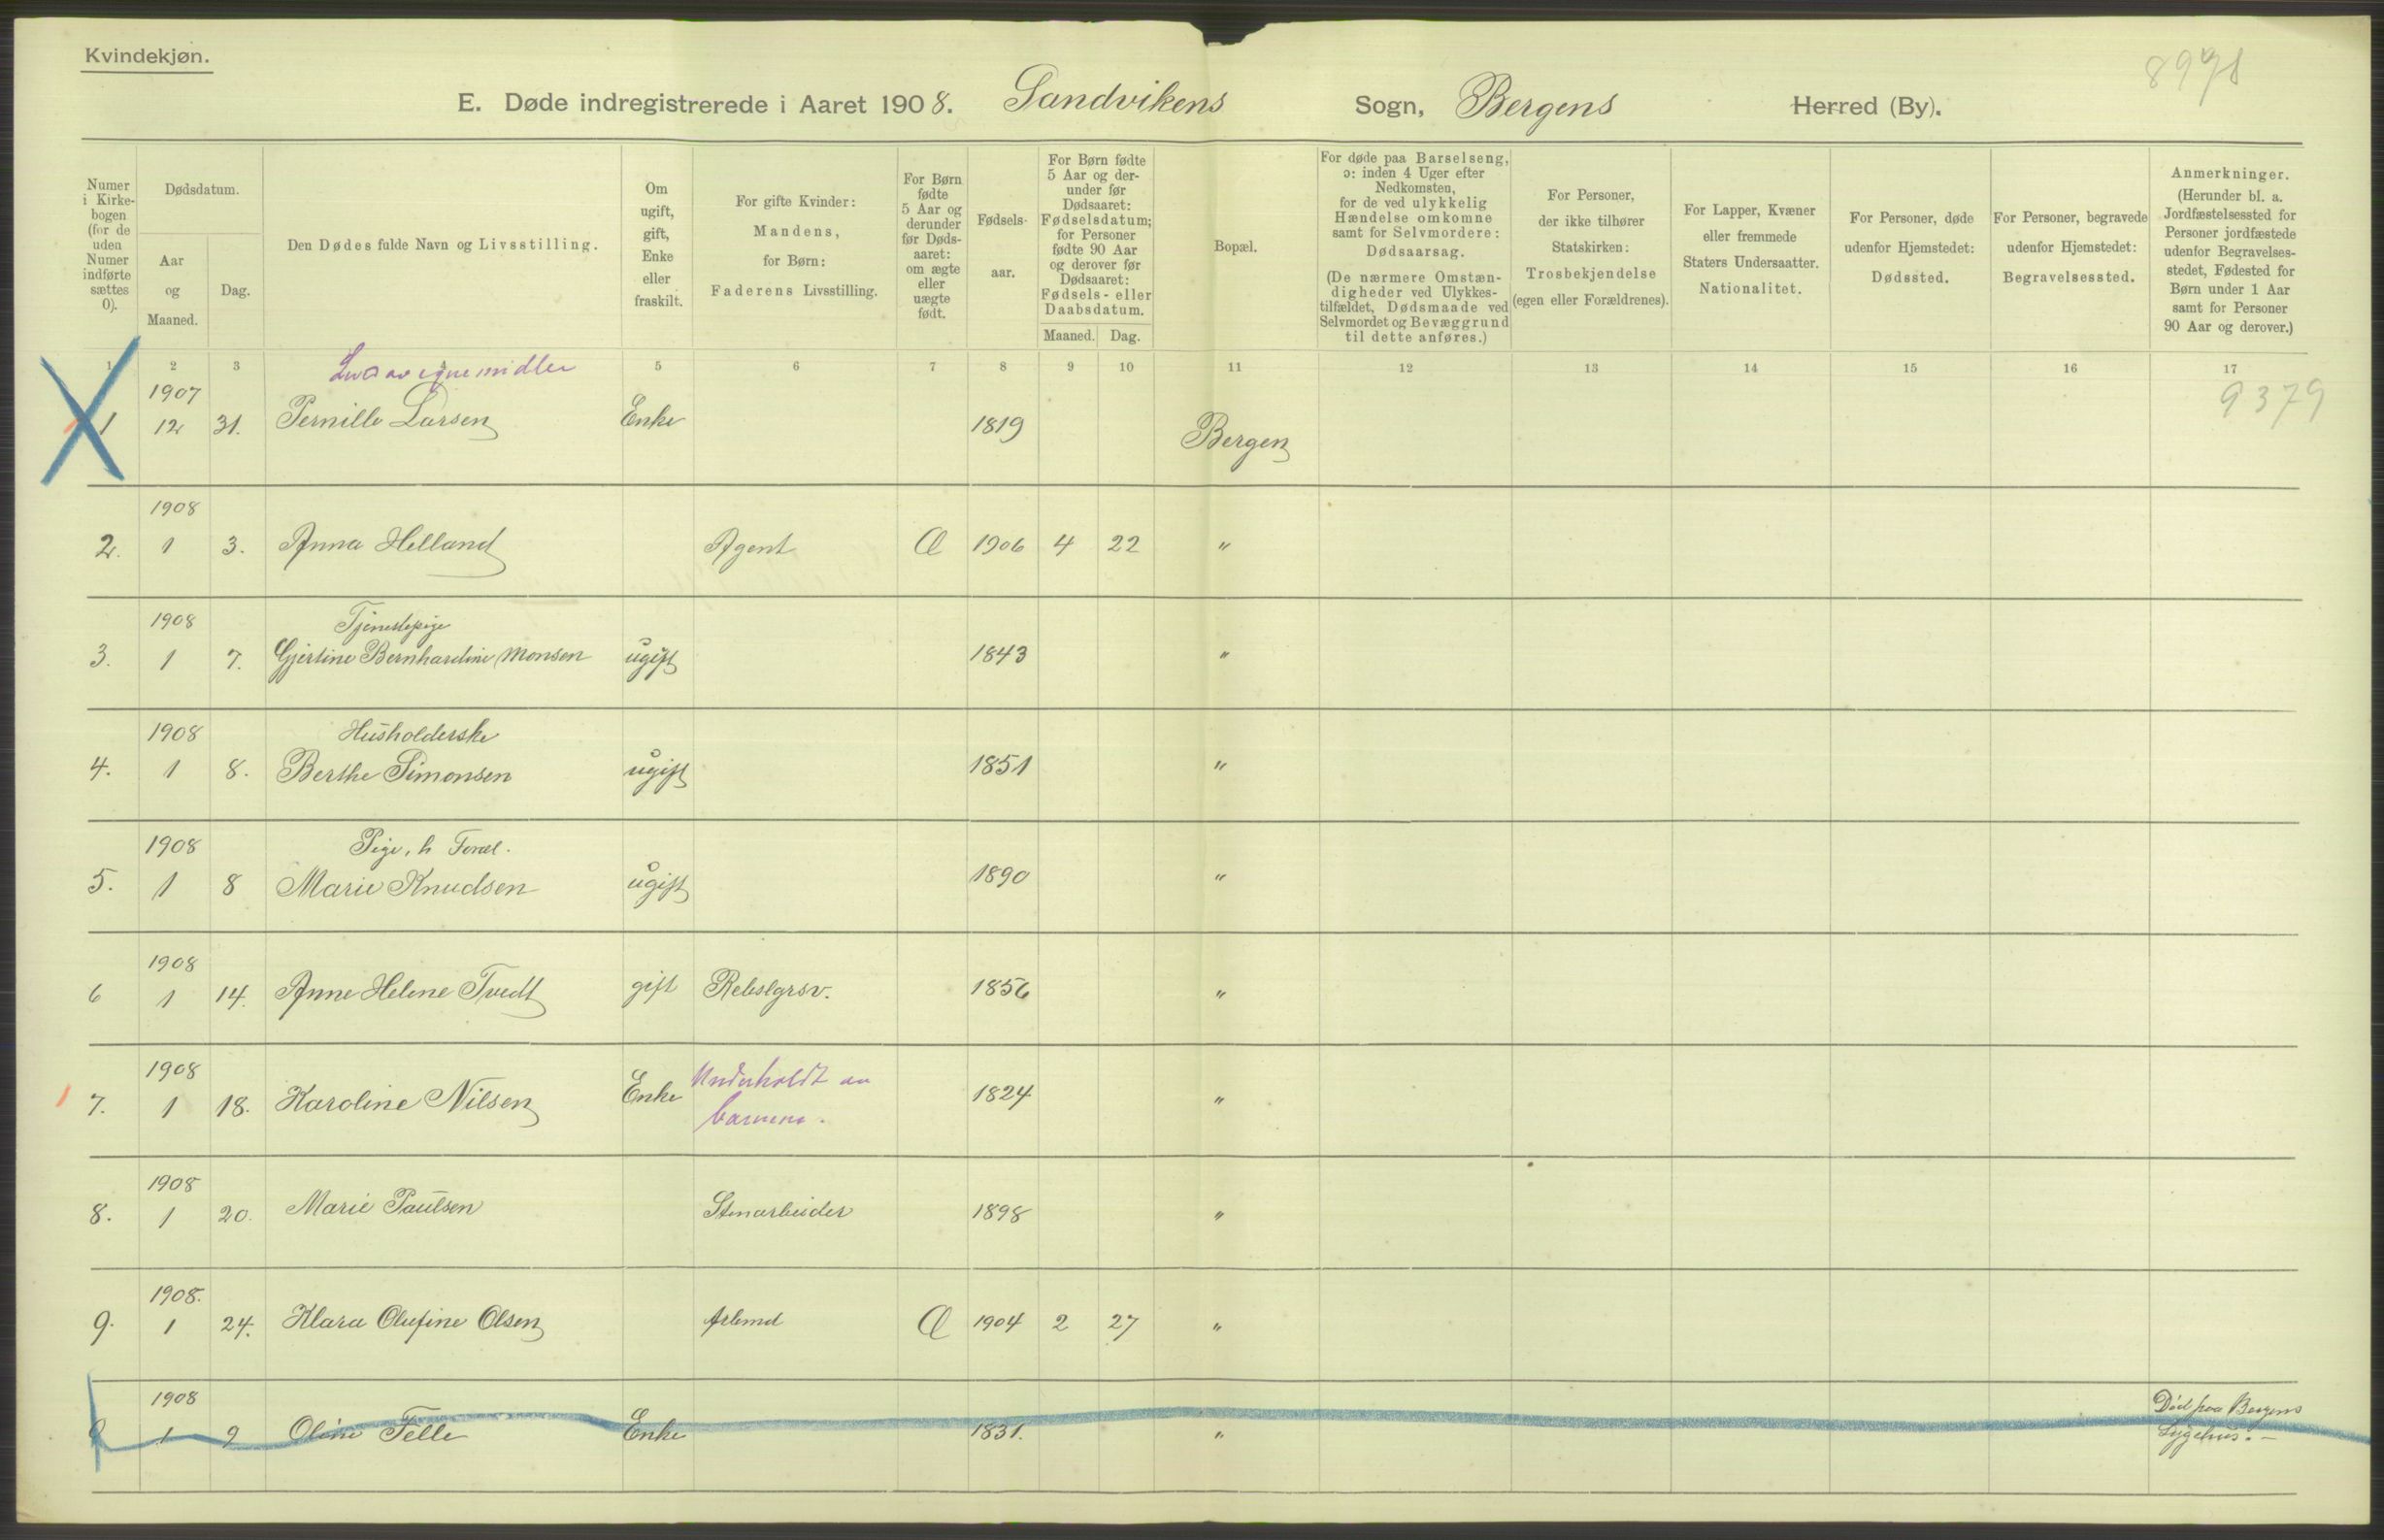 Kvindekjøn.
8998
E. Døde indregistrerede i Aaret 1908. Sandvikens Sogn, Bergens Herred (By).
Numer i Kirke-bogen (for de uden Numer indførte sættes 0).
Dødsdatum.
Aar og Maaned.
Dag.
Den Dødes fulde Navn og Livsstilling.
Om ugift, gift, Enke eller fraskilt.
For gifte Kvinder: Mandens, for Børn: Faderens Livsstilling.
For Børn fødte 5 Aar og derunder før Døds-aaret: om ægte eller uægte født.
Fødsels-aar.
For Børn fødte 5 Aar og der-under før Dødsaaret: Fødselsdatum; for Personer fødte 90 Aar og derover før Dødsaaret: Fødsels- eller Daabsdatum.
Maaned. Dag.
Bopæl.
For døde paa Barselseng, ɔ: inden 4 Uger efter Nedkomsten, for de ved ulykkelig Hændelse omkomne samt for Selvmordere: Dødsaarsag. (De nærmere Omstæn-digheder ved Ulykkes-tilfældet, Dødsmaade ved Selvmordet og Bevæggrund til dette anføres.)
For Personer, der ikke tilhører Statskirken: Trosbekjendelse (egen eller Forældrenes).
For Lapper, Kvæner eller fremmede Staters Undersaatter. Nationalitet.
For Personer, døde udenfor Hjemstedet: Dødssted.
For Personer, begravede udenfor Hjemstedet: Begravelsessted.
Anmerkninger. (Herunder bl. a. Jordfæstelsessted for Personer jordfæstede udenfor Begravelses-stedet, Fødested for Børn under 1 Aar samt for Personer 90 Aar og derover.)
1 2 3 4 5 6 7 8 9 10 11 12 13 14 15 16 17
1907 av egne midler 9379
1 12 31. Pernille Larsen Enke 1819 Bergen
1908
2. 1 3. Anna Helland Agent Æ 1906 4 22 "
1908 Tjenestepige
3. 1 7. Gjertine Bernhardine Monsen ugift 1843 "
1908 Husholderske
4. 1 8. Berthe Simonsen ugift 1851 "
1908 Pige, h Foræl.
5. 1 8 Marie Knudsen ugift 1890 "
1908
6 1 14. Anne Helene Tvedt gift Rebslgrsv. 1856 "
1908 Underholdt av
7. 1 18. Karoline Nilsen Enke 1824 "
barnene.
1908
8. 1 20. Marie Paulsen Stenarbeider 1898 "
1908.
9. 1 24. Klara Olufine Olsen Arbmd Æ 1904 2 27 "
1908 Död paa Bergens
0 1 9 Oline Telle Enke 1831. " Sygehus. -